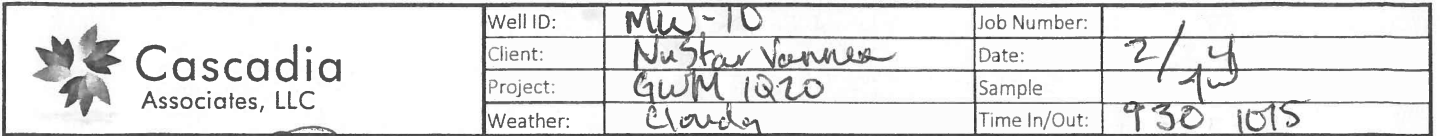 Cascadia
Associates, LLC
Well ID: MW-10 Job Number:
Client: NuStar Vannex Date: 2/4
Project: GWM 1Q20 Sample
Weather: Cloudy Time In/Out: 930 1015